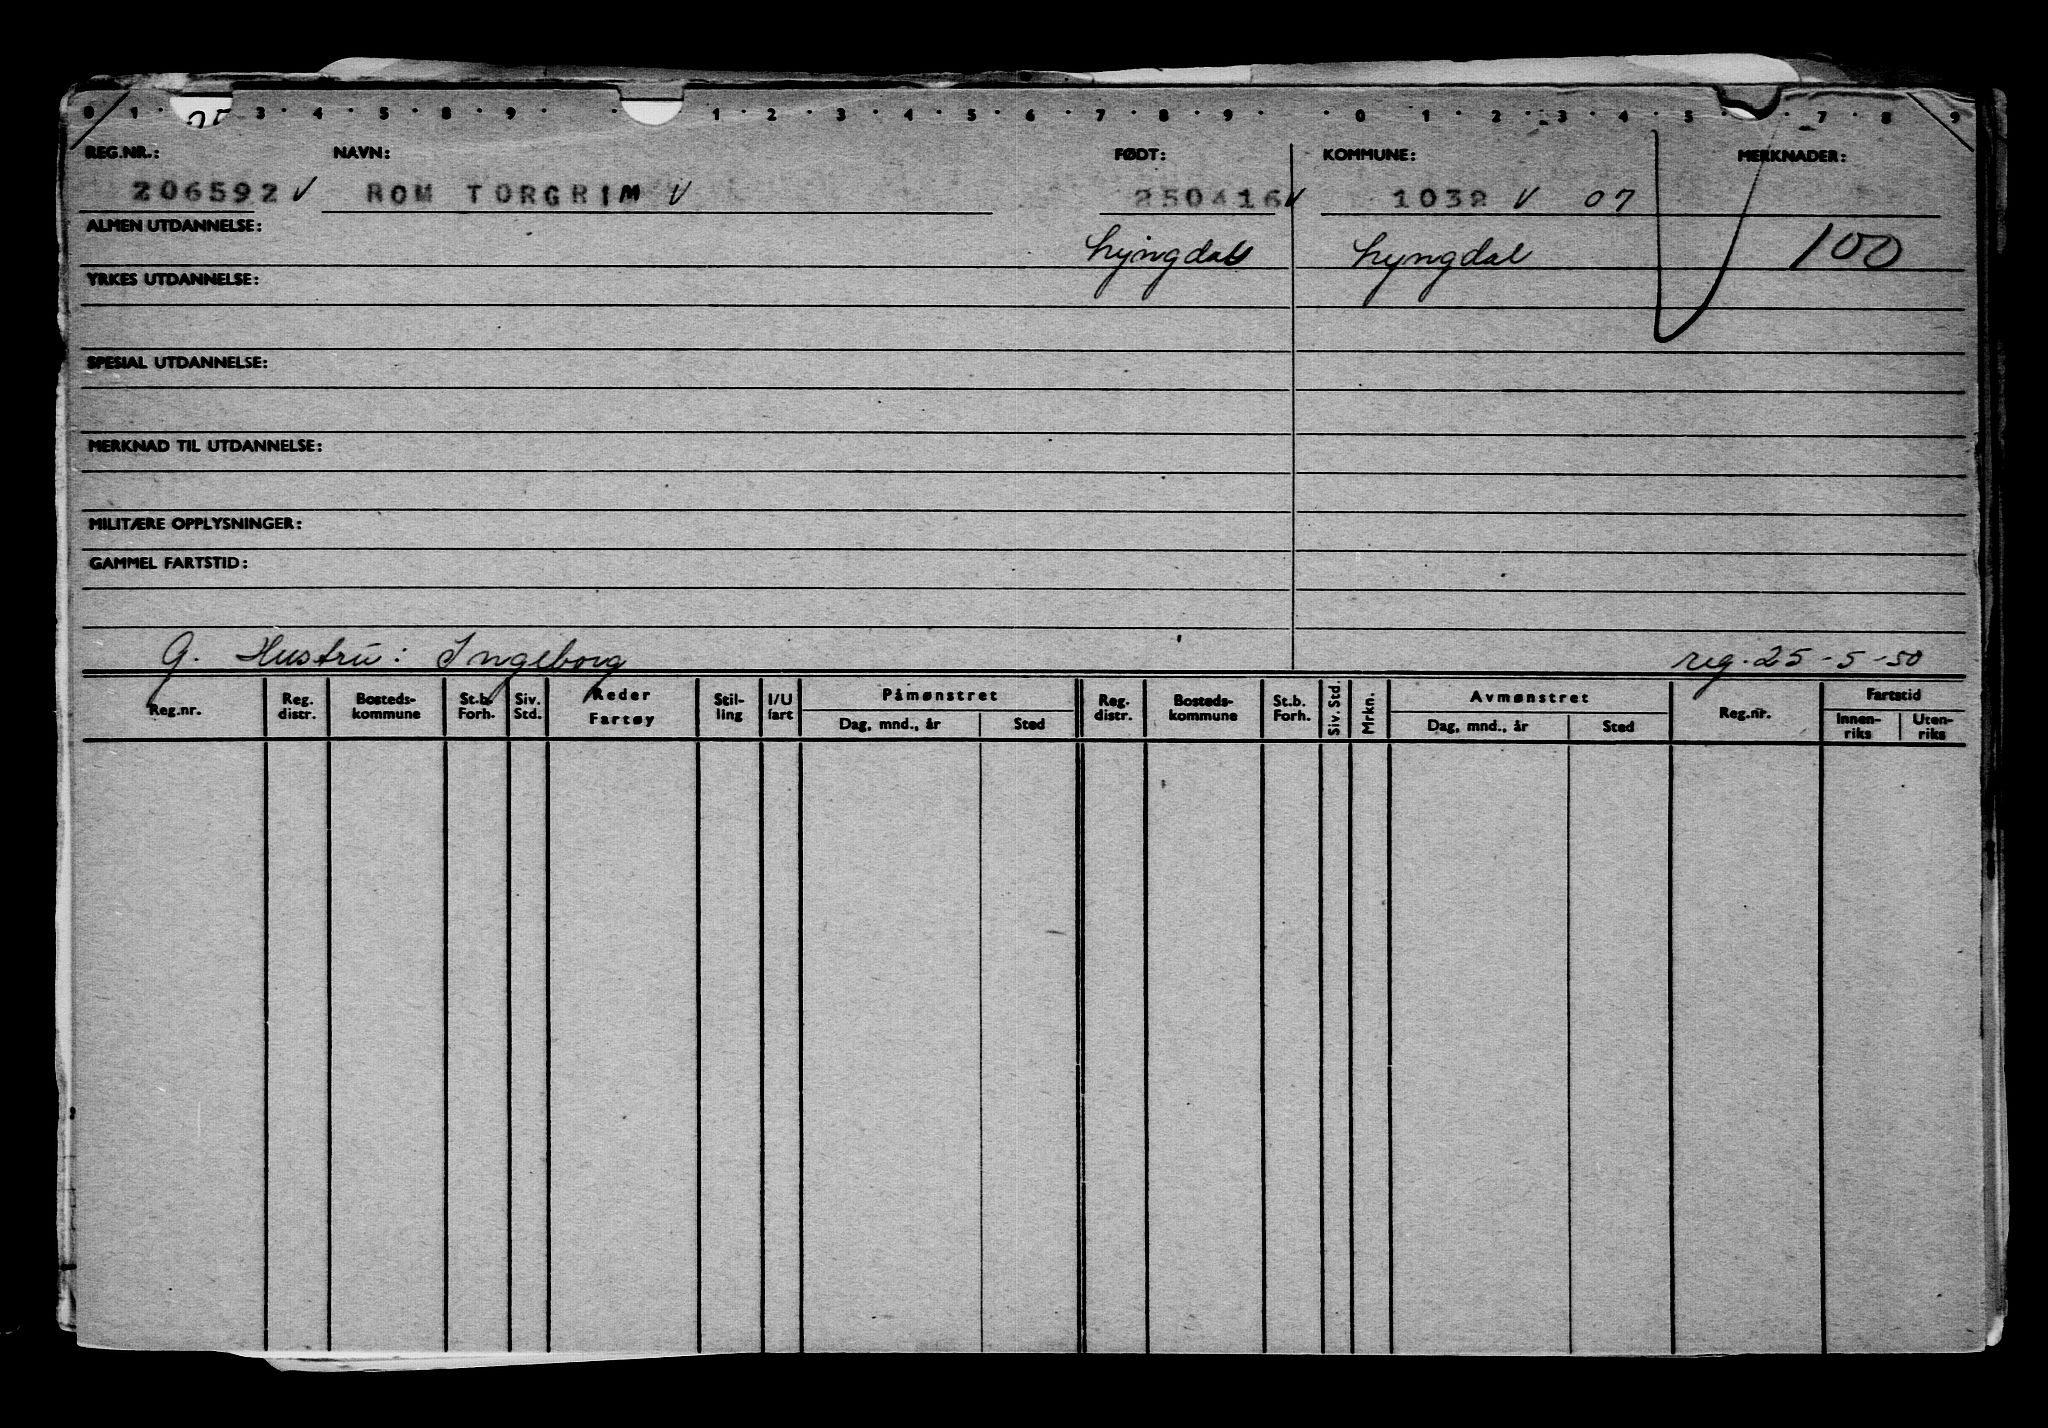 0 1 3 4 5 8 9 1 2 3 4 5 6 7 8 9 0 1 2 3 4 5 7 8 9
REG.NR.: NAVN: FØDT: KOMMUNE: MERKNADER:
206592 V ROM TORGRIM V 250416 V 1032 V 07
ALMEN UTDANNELSE: Lyngdal Lyngdal 100
YRKES UTDANNELSE:
SPESIAL UTDANNELSE:
MERKNAD TIL UTDANNELSE:
MILITÆRE OPPLYSNINGER:
GAMMEL FARTSTID:
G. Hustru: Ingeborg reg. 25-5-50
Reg.nr. Reg. distr. Bosteds-kommune St.b. Forh. Siv. Std. Reder Fartøy Stil-ling I/U fart Påmønstret Dag, mnd., år Sted Reg. distr. Bosteds-kommune St.b. Forh. Siv. Std. Mrkn. Avmønstret Dag, mnd., år Sted Reg.nr. Fartstid Innen-riks Uten-riks